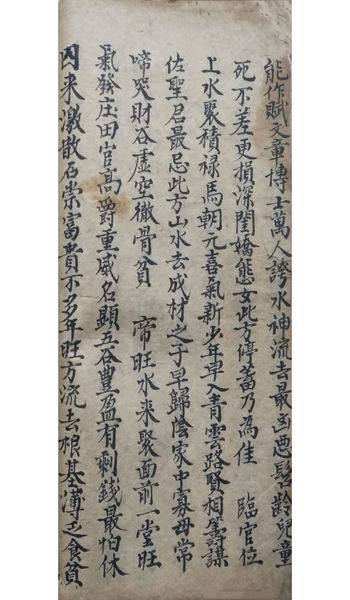 能作賦文章博士萬人誇水神流去最凶悪髫齡兒童
死不差更損深閨嬌態女此方停蓄乃為佳　臨官位
上水聚積禄馬朝元喜氣新少年早入青雲路賢相籌謀
佐聖君最忌此方山水去成材之子早歸陰家中寡母常
啼哭財谷虛空徹骨貧　帝旺水来聚面前一堂旺
氣發庄田官高爵重威名顯五谷豊盈有剩錢最怕休
囚来激散石崇富貴不多年旺方流去根基薄乏食貧